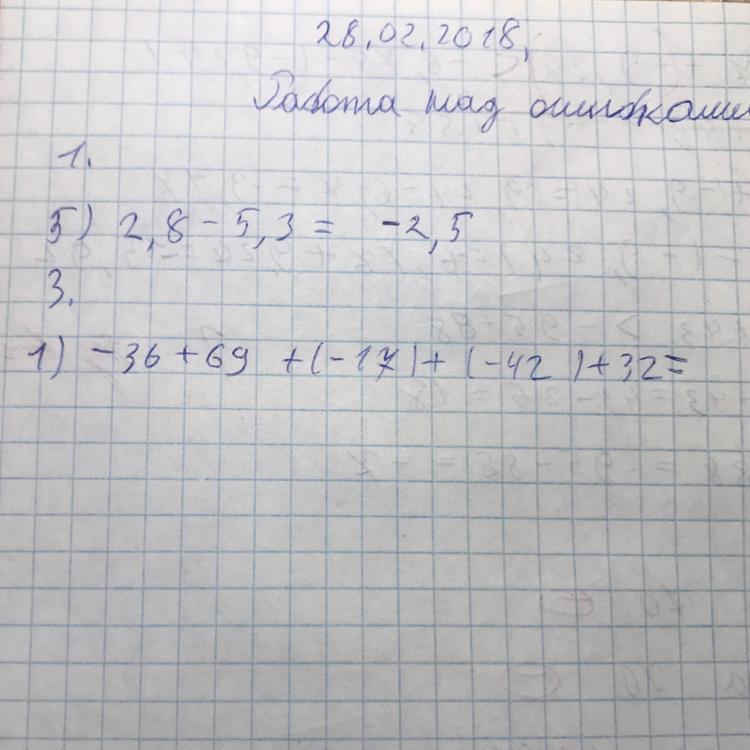 28.02.2018,
Работа над ошибками
1.
5) 2,8 - 5,3 = -2,5
3.
1) -36 + 69 + (-17) + (-42) + 32 =